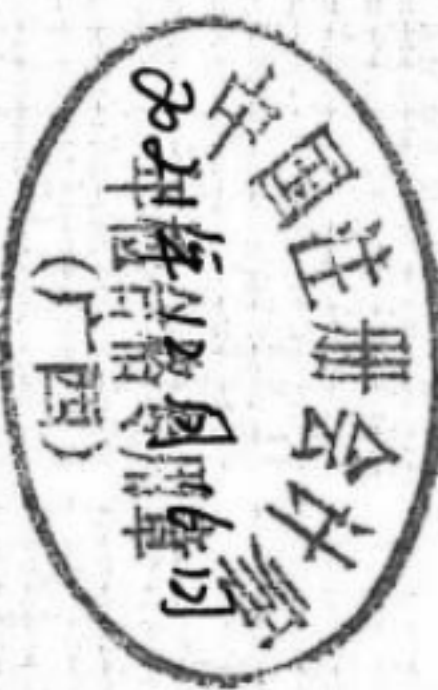 中国注册会计师
年检合格专用章
(广西)